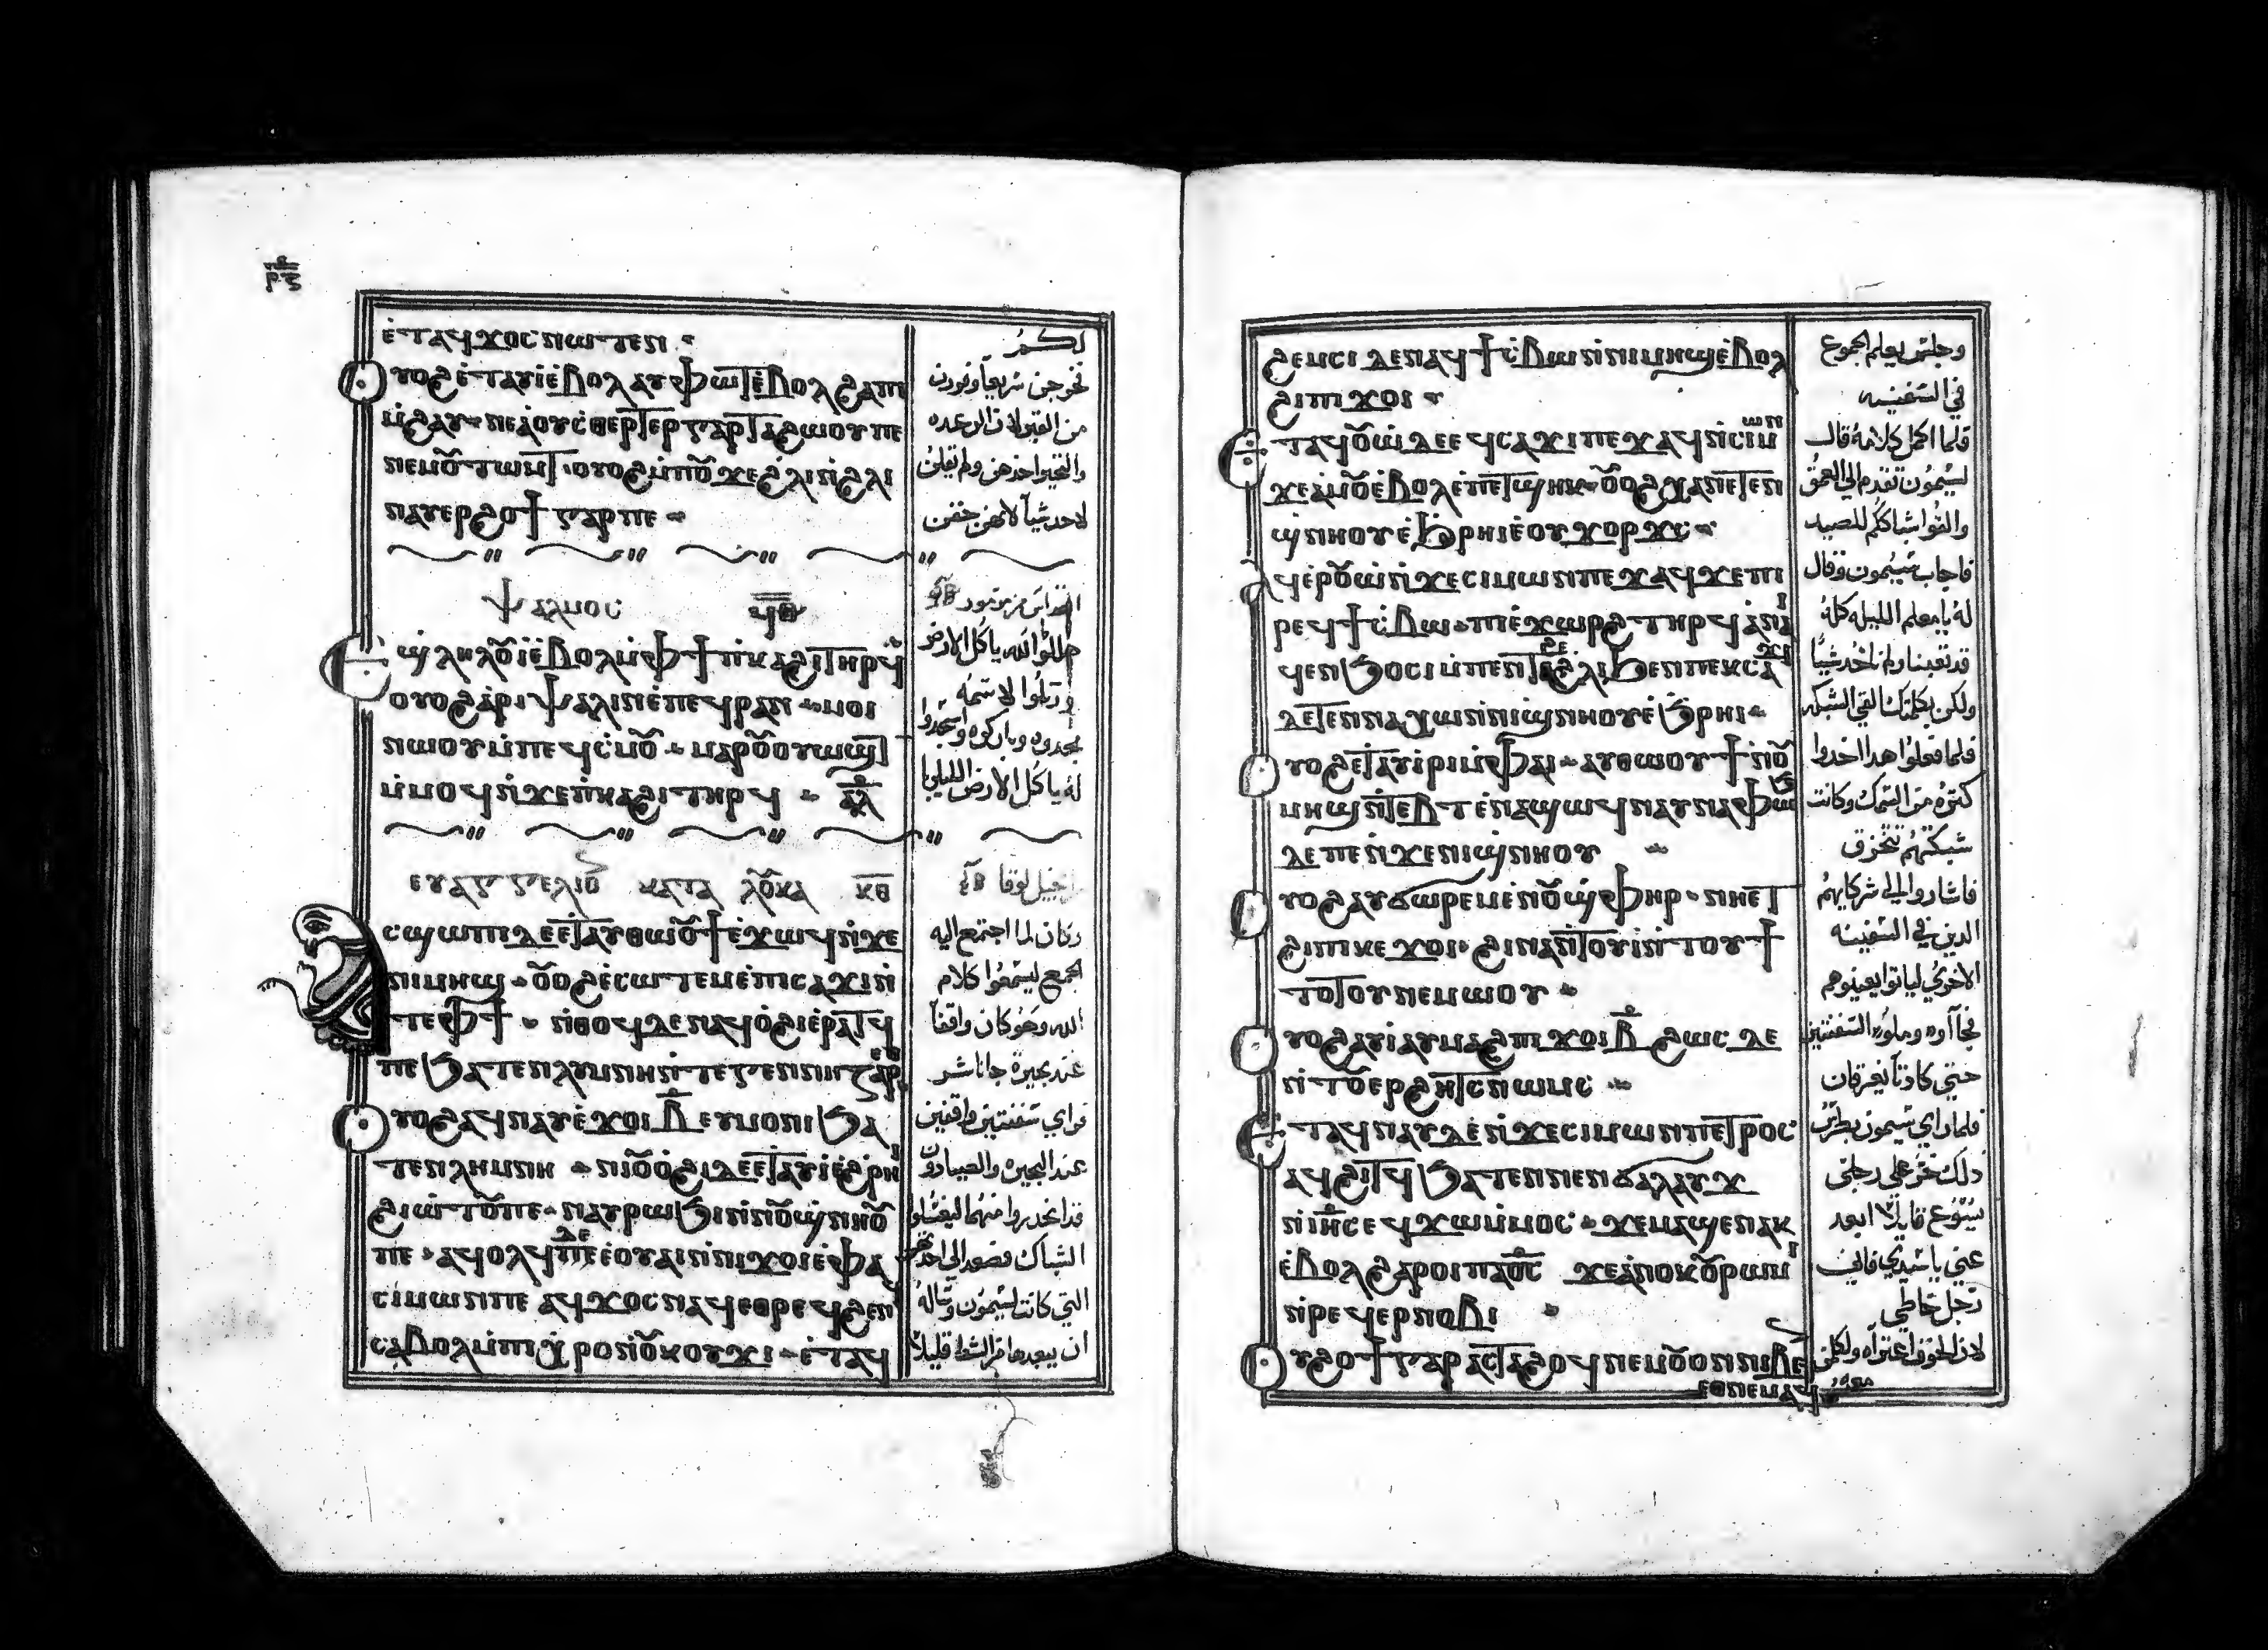 ⲣⲍ
ⲉ̇ⲧⲁϥϫⲟⲥ ⲛⲱⲧⲉⲛ
ⲟⲩⲟϩ ⲉ̇ⲧⲁⲩⲓ̇ⲉ̇ⲃⲟⲗ ⲁⲩⲫⲱⲧ ⲉ̇ⲃⲟⲗ ϩⲁⲡⲓ
ⲙ̇ϩⲁⲩ ⲛⲉⲁ̇ⲟⲩⲥ̇ⲑⲉⲣⲧⲉⲣ ⲅⲁⲣ ⲧⲁϩⲱⲟⲩ ⲡⲉ
ⲛⲉⲙⲟ̅ⲩⲧⲱⲙⲧ ⲟⲩⲟϩ ⲙ̇ⲡⲟ̅ⲩϫⲉ ϩ̇ⲗⲓ ⲛ̇ϩ̇ⲗⲓ
ⲛⲁⲩⲉⲣϩⲟϯ ⲅⲁⲣ ⲡⲉ
ⲯⲁⲗⲙⲟⲥ ϥ̅ⲑ̅
ⲉϣⲗⲏⲗⲟ̅ⲩⲓ̇ ⲉ̇ⲃⲟⲗ ⲙ̇ⲫϯ ⲡⲓⲕⲁϩⲓ ⲧⲏⲣϥ
ⲟⲩⲟϩ ⲁ̇ⲣⲓⲯⲁⲗⲓⲛ ⲉ̇ⲡⲉϥⲣⲁⲛ ⲙⲟⲓ
ⲛⲱⲟⲩ ⲙ̇ⲡⲉϥⲥ̇ⲙⲟ̅ⲩ ⲙⲁⲣⲟ̅ⲩⲟⲩⲱϣⲧ
ⲙ̇ⲙⲟϥ ⲛ̇ϫⲉ ⲡⲓⲕⲁϩⲓ ⲧⲏⲣϥ ⲁ̅ⲗ̅
ⲉⲩⲁⲅⲅⲉⲗⲓⲟ̅ⲛ ⲕⲁⲧⲁ ⲗⲟ̅ⲩⲕⲁ ⲕ̅ⲑ̅
ⲁⲥϣⲱⲡⲓ ⲇⲉ ⲉⲧⲁⲩⲑⲱⲟ̅ⲩϯ ⲉ̇ϫⲱϥ ⲛ̇ϫⲉ
ⲛⲓⲙⲏϣ ⲟ̅ⲩⲟϩ ⲉ̇ⲥⲱⲧⲉⲙ ⲉ̇ⲡⲓⲥⲁϫⲓ ⲛ̇
ⲧⲉⲫϯ ⲛ̇ⲑⲟϥ ⲇⲉ ⲛⲁϥⲟ̇ϩⲓ ⲉ̇ⲣⲁⲧϥ
ⲡⲉ ϧⲁⲧⲉⲛ ⲗⲩⲙⲛⲏ ⲛ̇ⲧⲉ ⲅⲉⲛⲛⲏⲥⲁⲣⲉⲑ
ⲟⲩⲟϩ ⲁϥⲛⲁⲩ ⲉ̇ϫⲟⲓ ⲃ̅ ⲉⲩⲙⲟⲛⲓ ϧⲁ
ⲧⲉⲛ ⲗⲏⲙⲛⲏ ⲛⲓⲟ̅ⲩⲟ̇ϩⲓ ⲇⲉ ⲉⲧⲁⲩⲓ̇ ⲉ̇ϩⲣⲏⲓ
ϩⲓⲱ̇ⲧⲟ̅ⲩ ⲡⲉ ⲛⲁⲩⲣⲱϧⲓ ⲛ̇ⲛⲟ̅ⲩϣⲛⲏⲟ̅ⲩ
ⲡⲉ ⲁϥⲟⲗϥ ⲇⲉ ⲡⲉ ⲉ̇ⲟⲩⲁⲓ ⲛ̇ⲛⲓϫⲟⲓ ⲉ̇ⲫⲁ
ⲥⲓⲙⲱⲛ ⲡⲉ ⲁϥϫⲟⲥ ⲛⲁϥ ⲉⲑⲣⲉϥϩⲉⲛϥ
ⲥⲁⲃⲟⲗ ⲙ̇ⲡⲓⲭⲣⲟ ⲛ̇ⲟ̅ⲩⲕⲟⲩϫⲓ ⲉ̇ⲧⲁϥ
لكم
فخرجن سريعا وفررن
من القبر لان الرعده
والتحير اخذهن ولم يقلن
لاحد شيا لانهن خفن
القداس مزمور ϥ̅ⲑ̅
هللوا لله يا كل الارض
ورتلوا لاسمه
مجدوه وباركوه واسجدوا
له يا كل الارض الليلويا
انجيل لوقا
وكان لما اجتمع اليه
الجمع ليسمعوا كلام
الله وهو كان واقفا
عند بحيرة جاناشر
فراي سفينتين واقفين
عند البحيره والصيادون
قد انحدروا منهما ليغسلوا
الشباك فصعد الي احدهم
التي كانت لسيمون وساله
ان يبعدها من الشط قليلا
ϩⲉⲙⲥⲓ ⲇⲉ ⲛⲁϥϯⲥ̇ⲃⲱ ⲛ̇ⲛⲓⲙⲏϣ ⲉ̇ⲃⲟⲗ
ϩⲓⲡⲓϫⲟⲓ
ⲉⲧⲁϥⲟ̅ⲩⲱ̇ ⲇⲉ ⲉϥⲥⲁϫⲓ ⲡⲉϫⲁϥ ⲛ̇ⲥⲓⲙⲱⲛ
ϫⲉ ⲁ̇ⲙⲟ̅ⲩ ⲉ̇ⲃⲟⲗ ⲉ̇ⲡⲉⲧϣⲏⲕ ⲟ̅ⲩⲟϩ ⲭⲁ ⲛⲉⲧⲉⲛ
ϣⲛⲏⲟⲩ ⲉ̇ϧⲣⲏⲓ ⲉ̇ⲟⲩϫⲟⲣϫⲥ
ⲁϥⲉⲣⲟ̅ⲩⲱ̇ ⲛ̇ϫⲉ ⲥⲓⲙⲱⲛ ⲡⲉϫⲁϥ ϫⲉ ⲡⲓ
ⲣⲉϥϯⲥ̇ⲃⲱ ⲡⲓⲉ̇ϫⲱⲣϩ ⲧⲏⲣϥ ⲁ̇ⲛⲁ
ϥⲉⲛϧⲟⲥⲓ ⲙ̇ⲡⲉⲛⲧⲁϩⲉ ϩ̇ⲗⲓ ϧⲉⲛ ⲡⲉⲕⲥⲁϫⲓ
ⲇⲉ ⲧⲉⲛⲛⲁⲭⲱ ⲛ̇ⲛⲓϣⲛⲏⲟⲩ ⲉ̇ϧⲣⲏⲓ
ⲟⲩⲟϩ ⲉⲧⲁⲩⲓ̇ⲣⲓ ⲙ̇ⲫⲁⲓ ⲁⲩⲑⲱⲟⲩϯ ⲛ̇ⲟ̅ⲩ
ⲙⲏϣ ⲛ̇ⲧⲉⲃⲧ ⲉ̇ⲛⲁϣⲱϥ ⲛⲁⲩⲛⲁⲫⲱϧ
ⲇⲉ ⲡⲉ ⲛ̇ϫⲉ ⲛⲓϣⲛⲏⲟⲩ
ⲟⲩⲟϩ ⲁⲩϭⲱⲣⲉⲙ ⲉ̇ⲛⲟ̅ⲩϣⲫⲏⲣ ⲛⲏⲉⲧ
ϩⲓ ⲡⲓⲕⲉϫⲟⲓ ϩⲓⲛⲁ ⲛ̇ⲧⲟⲩⲓ̇ ⲛ̇ⲧⲟⲩϯ
ⲧⲟⲧⲟⲩ ⲛⲉⲙⲱⲟⲩ
ⲟⲩⲟϩ ⲁⲩⲓ̇ ⲁⲩⲙⲁϩ ⲡⲓϫⲟⲓ ⲃ̅ ϩⲱⲥ ⲇⲉ
ⲛ̇ⲧⲟ̅ⲩⲉⲣϩⲏⲧⲥ ⲛⲱⲙⲥ
ⲉⲧⲁϥⲛⲁⲩ ⲇⲉ ⲛ̇ϫⲉ ⲥⲓⲙⲱⲛ ⲡⲉⲧⲣⲟⲥ
ⲁϥϩⲓⲧϥ ϧⲁⲧⲉⲛ ⲛⲉⲛϭⲁⲗⲁⲩϫ
ⲛ̇ⲓⲏ̅ⲥ ⲉϥϫⲱ ⲙ̇ⲙⲟⲥ ϫⲉ ⲙⲁϣⲉⲛⲁⲕ
ⲉ̇ⲃⲟⲗ ϩⲁⲣⲟⲓ ⲡⲁⲟ̅ⲥ̅ ϫⲉ ⲁ̇ⲛⲟⲕ ⲟ̅ⲩⲣⲱⲙⲓ
ⲛ̇ⲣⲉϥⲉⲣⲛⲟⲃⲓ
ⲟⲩϩⲟϯ ⲅⲁⲣ ⲁⲥⲧⲁϩⲟϥ ⲛⲉⲙ ⲟ̅ⲩⲟⲛ ⲛⲓⲃⲉⲛ
ⲉⲑⲛⲉⲙⲁϥ
وجلس يعلم الجموع
في السفينه
فلما اكمل كلامه قال
لسيمون تقدم الي العمق
والقوا شباككم للصيد
فاجاب سيمون وقال
له يا معلم الليله كله
قد تعبنا ولم ناخد شيا
ولكن بكلمتك نلقي الشبكه
فلما فعلوا هدا اخدوا
كثره من السمك وكانت
شبكتهم تتخرق
فاشاروا الي شركايهم
الدين في السفينه
الاخري لياتوا يعينوهم
فجآاوه وملوه السفنتين
حتي كادتا يغرقان
فلما راي سيمون بطرس
دلك خر علي رجلي
يسوع قايلا ابعد
عني يا سيدي فاني
رجل خاطي
لان الخوف اعتراه ولكلمن
معه